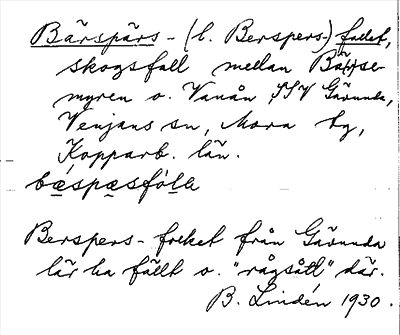 Bärspärs- (l. Berspers-) fallet,
skogsfall mellan Bärse-
myren o. Vanån, SSV Gävunda,
Venjans sn, Mora tg,
Kopparb. län.
bæspæsfóla
Berspers-folket från Gävunda
lär ha fällt o. "rågsått" där.
B. Lindén 1930.